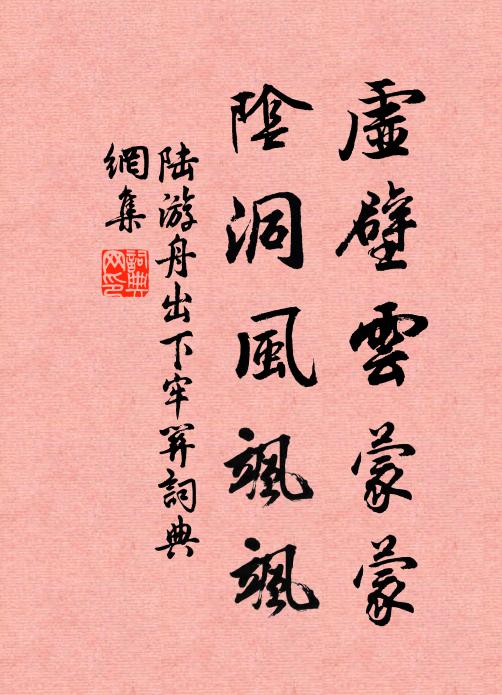 虛壁雲蒙蒙
陰洞風颯颯
陸游舟出下牢關詞典
網集
詞典網印